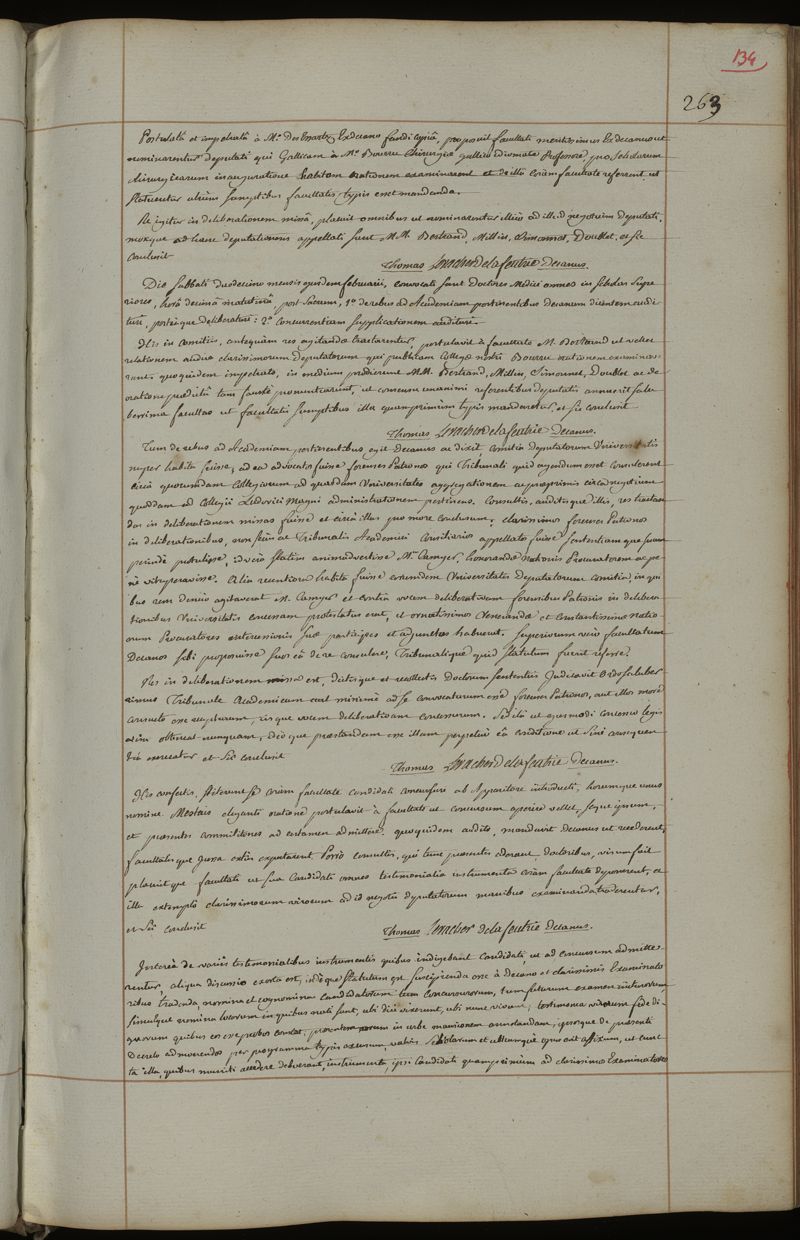 134
263
Postulatâ et impetratâ à Mo. Des Essartz Exdecano faudi copiâ, proposuit facultati meritissimus Exdecanus ut
nominarentur deputati qui Gallicam à Mo. Bourru Chirurgiæ gallico idiomate Professore, pro Scholarum
chirurgicarum inauguratione habitam orationem examinarent et de illâ coram facultate referrent ut
statueretur utrum sumptibus facultatis typis esset mandanda.
Re igitur in deliberationem missâ, placuit omnibus ut nominarentur illico ad illud negotium deputati,
moxque ad hanc deputationem appellati sunt M.M. Bertrand, Millin, Simonnet, Doublet, et sic
conclusit
Thomas Levacher de la feutrie Decanus.
Die sabbati duodecimo mensis ejusdem februarii, convocati sunt Doctores Medici omnes in scholas supe
riores, horâ decimâ matutinâ post sacrum, 1o. de rebus ad Academiam pertinentibus decanum dicentem audi
turi, posteaque deliberaturi: 2o. concurrentium supplicationem audituri.
His in comitiis, antequam res agitandæ tractarentur, postulavit à facultate M. Bertrand ut vellet
relationem audire clarissimorum deputatorum qui publicam Collegæ nostri Bourru orationem examinave
runt. quo quidem impetrato, in medium prodierunt MM. Bertrand, Millin, Simonnet, Doublet ac de
oratione prædictâ tam faustè pronuntiarunt, ut consensu unanimi referentibus deputatis annuerit salu
berrima facultas ut facultatis sumptibus illa quamprimum typis mandaretur, et sic conclusit
Thomas Levacher de la feutrie Decanus.
Tum de rebus ad Academiam pertinentibus egit Decanus ac dixit, comitia deputatorum Universitatis
nuper habita fuisse, ad ea advocatos fuisse forenses Patronos qui Tribunali quid agendum esset consulerent
circà quorumdam Collegiorum ad quasdam Universitates aggregationem ac præsertim circà negotium
quoddam ad Collegii Ludovici Magni administrationem pertinens. Consultis, auditisque illis, res tractan
das in deliberationem missas fuisse et circà illas pro more conclusum; clarissimos forenses Patronos
in deliberationibus, non secùs ac Tribunalis Academici Consiliarios appellatos fuisse sententiamque suam
perindè protulisse, idcircò statim animadvertisse Mm. Camyer, honorandæ nationis Procuratorem ac pe
nè vituperavisse. Alia recentiora habita fuisse eorumdem Universitatis Deputatorum comitia, in qui
bus rem denuò agitaverat M. Camyer et contrà vocem deliberativam forensibus Patronis in delibera
tionibus Universitatis concessam protestatus erat, et ornatissimos Venerandæ et Constantissimæ natio
num Procuratores intercessionis suæ participes et adjunctos habuerat. superiorum verò facultatum
Decanos sibi proposuisse suos eâ de re consulere, Tribunalique quid statutum fuerit referre.
Re in deliberationem missâ est, dictisque et recollectis Doctorum sententiis Judicavit Ordo saluber
rimus Tribunale Academicum aut minimè ad se convocaturum esse forenses Patronos, aut illos more
consueto esse accepturum, iisque vocem deliberativam concessurum. Sed ità ut ejusmodi concessio legis
vim obtineat nunquam, deoque præstandum esse illam perpetuò eâ conditione ut sine consequen
tiâ servetur et sic conclusit
Thomas Levacher de la feutrie Decanus.
His confectis, stiterunt se coram facultate candidati concursuri ab Apparitore introducti, horumque unus
nomine Mestais eleganti oratione postulavit à facultate ut concursum aperire vellet, seque ipsum,
et præsentes commilitones ad certamen admittere. quoquidem audito, mandavit decanus ut recederent,
facultatisque jussa extrà expectarent. Porrò consultis, qui tunc præsentes aderant doctoribus, visum fuit
placuitque facultati ut sua candidati omnes testimonialia instrumenta coram facultate deponerent, et
illa extemplò clarissimorum virorum ad id negotii deputatorum manibus examinanda traderentur,
et sic conclusit
Thomas Levacher de la feutrie decanus.
Intereà de variis testimonialibus instrumentis quibus indigebant candidati, ut ad concursum admitte
rentur, aliqua discussio exorta est, ideòque statutum est suscipienda esse à Decano et clarissimis Examinato
ribus tradenda, nomina et cognomina candidatorum tum concursurorum, tum futurum examen initurorum,
simulque nomina locorum in quibus nati sunt, ubi diù vixerunt, ubi nunc vivunt, testimonia virorum fide di-
gnorum quibus eos esse probos constet, præsentem eorum in urbe mansionem annotandam, ipsosque de præsenti
Decreto admonendos per programma typis excusum valvis scholarum et ubicumque opus erit affixum, ut cunc
ta illa quibus muniti accedere debuerant, instrumenta, ipsi candidati quamprimùm ad clarissimos Examinatores